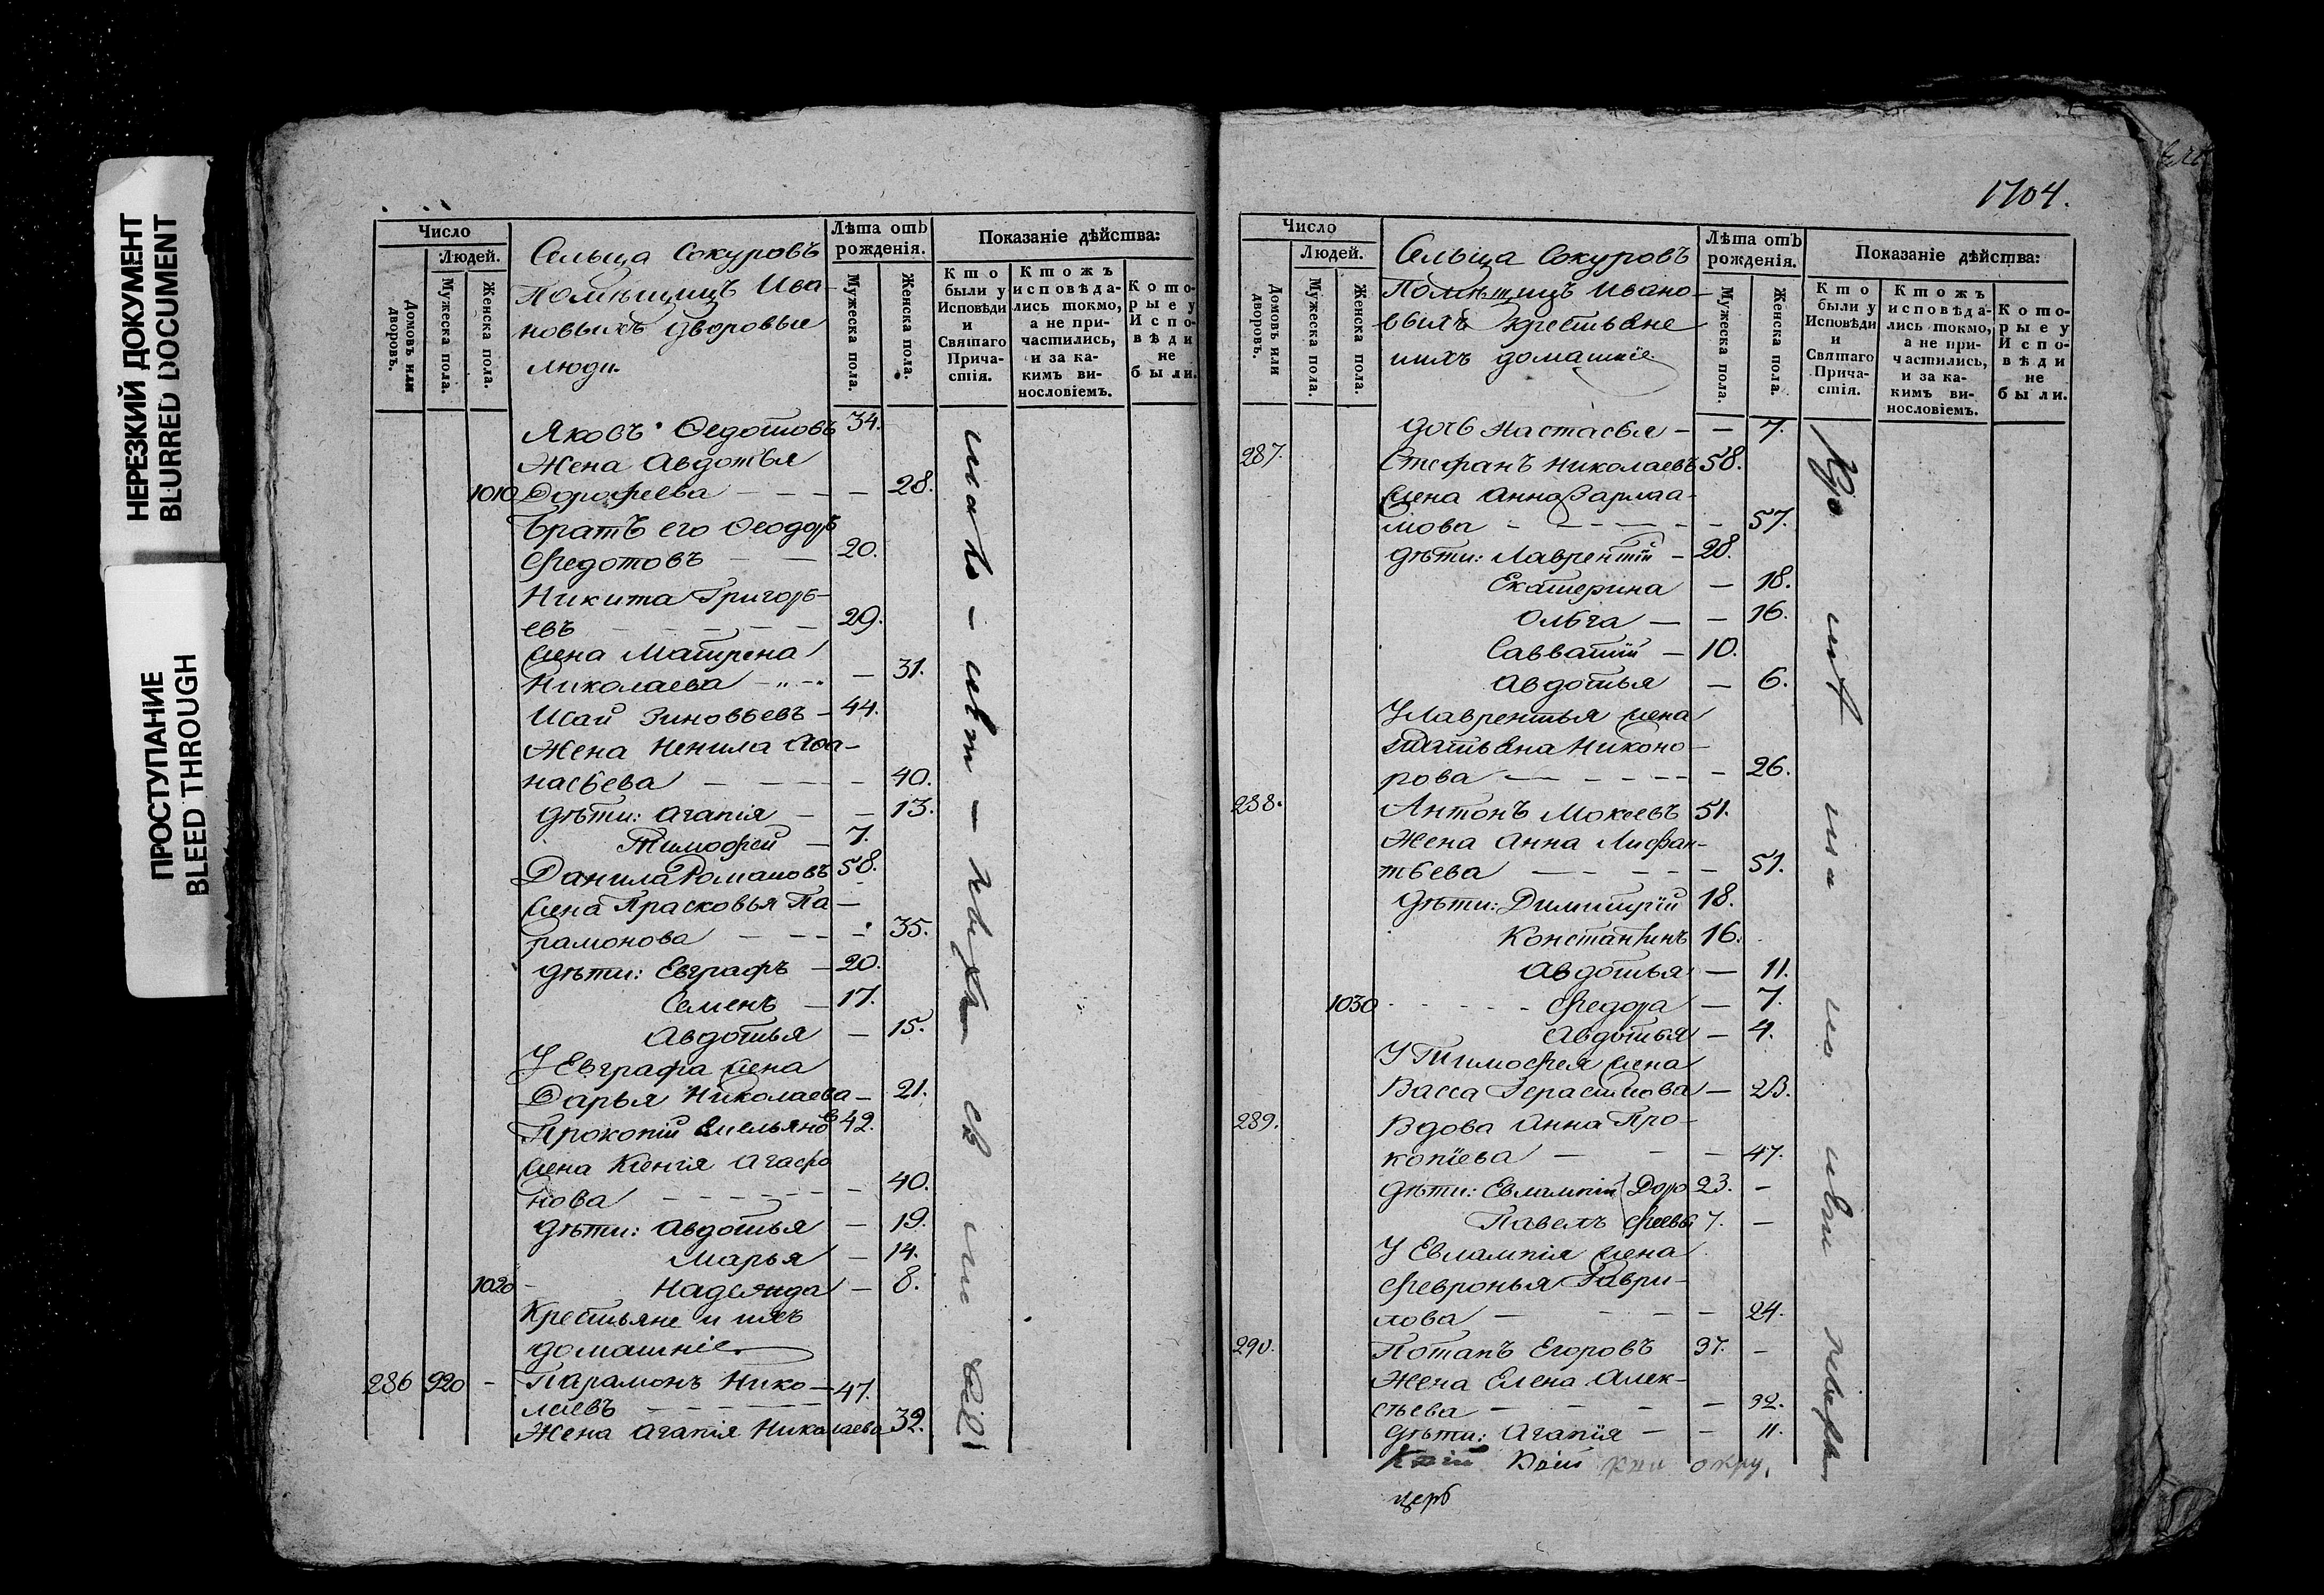 НЕРЕЗКИЙ ДОКУМЕНТ
BLURRED DOCUMENT
ПРОСТУПАНИЕ
BLEED THROUGH
Число
Людей.
Домовъ или дворовъ.
Мужеска пола.
Женска пола.
Сельца Сокуровъ
Помѣщицъ Ива-
новыхъ дворовые
люди.
Лѣта отъ рожденія.
Мужеска пола.
Женска пола.
Показаніе дѣйства:
Кто были у Исповѣди и Святаго Прича-стія.
Ктожъ исповѣда-лись токмо, а не при-частились, и за ка-кимъ ви-нословіемъ.
Кото-рые у Испо-вѣди не были.
Яковъ Ѳедотовъ 34.
Жена Авдотья
1010 Дорофеева — — — — 28.
Братъ его Ѳеодоръ
Федотовъ — — 20.
Никита Григорь-
евъ — — — — 29.
Жена Матрена
Николаева — — 31.
Исай Зиновьевъ — 44.
Жена Ненила Афа-
насьева — — — — 40.
Дѣти: Агапія — — 13.
Тимофей — 7.
Данила Романовъ 58.
Жена Прасковья Па-
рамонова — — — — 35.
Дѣти: Евграфъ — 20.
Семенъ — 17.
Авдотья — 15.
У Евграфа жена
Дарья Николаева — 21.
Прокопій Емельяновъ 42.
Жена Ксенія Агафо
нова — — — — — 40.
Дѣти: Авдотья — 19.
Марья — 14.
1020 - Надежда — 8.
Крестьяне и ихъ
домашніе
286 920 - Парамонъ Нико — 47.
лаевъ — — — — —
Жена Агапія Николаева 39.
1704.
Число
Людей.
Домовъ или дворовъ.
Мужеска пола.
Женска пола.
Сельца Сокуровъ
Помѣщицъ Ивано-
выхъ крестьяне
ихъ домашніе
Лѣта отъ рожденія.
Мужеска пола.
Женска пола.
Показаніе дѣйства:
Кто были у Исповѣди и Святаго Прича-стія.
Ктожъ исповѣда-лись токмо, а не при-частились, и за ка-кимъ ви-нословіемъ.
Кото-рые у Испо-вѣди не были.
дочь Настасья — — 7.
287. Стефанъ Николаевъ 58.
Жена Анна Варлаа-
мова — — — — — 57.
Дѣти: Лаврентій — 28.
Екатерина — 18.
Ольга — — 16.
Савватій — 10.
Авдотья — 6.
У Лаврентья жена
Татьяна Никоно-
рова — — — — — 26.
288. Антонъ Мокеевъ 51.
Жена Анна Лифан-
тьева — — — — — 51.
Дѣти: Димитрій 18.
Константинъ 16.
Авдотья — 11.
1030 - - - - Федора — 7.
Авдотья — 4.
У Тимофея жена
Васса Герасимова — 23.
289. Вдова Анна Про-
копіева — — — 47.
Дѣти: Евлампій Доро 23. —
Павелъ феевы 7. —
У Евлампія жена
Февронья Гаври-
лова — — — — 24.
290. Потапъ Егоровъ 37. —
Жена Елена Алек-
сѣева — — — — 32.
Дѣти: Агапія — — 11.